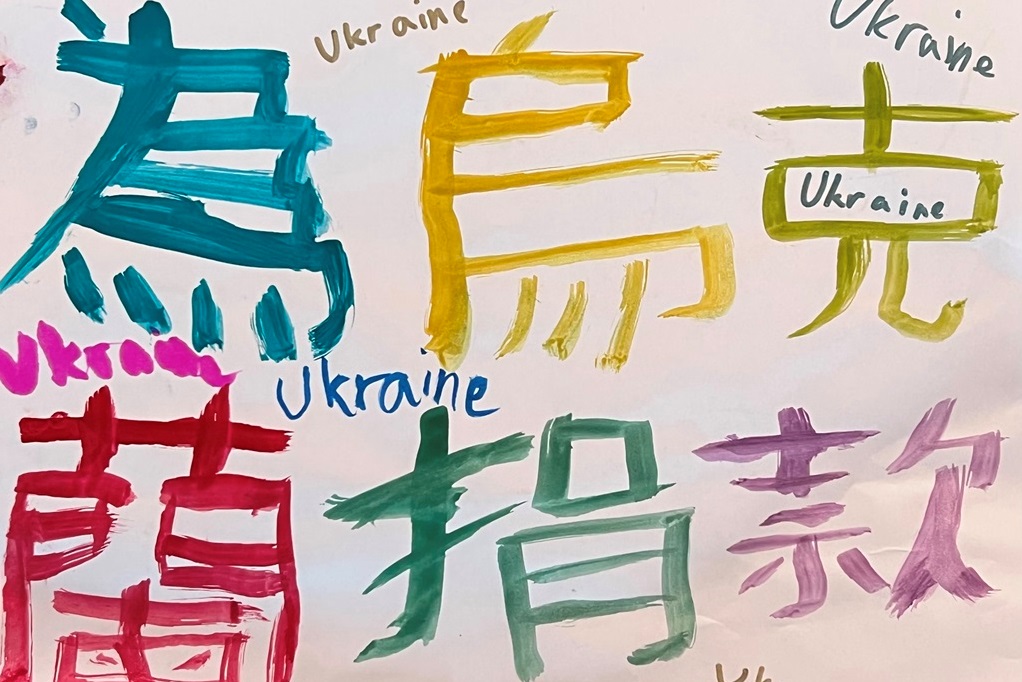 Ukraine
Ukraine
為烏克
Ukraine
Ukraine
蘭捐款